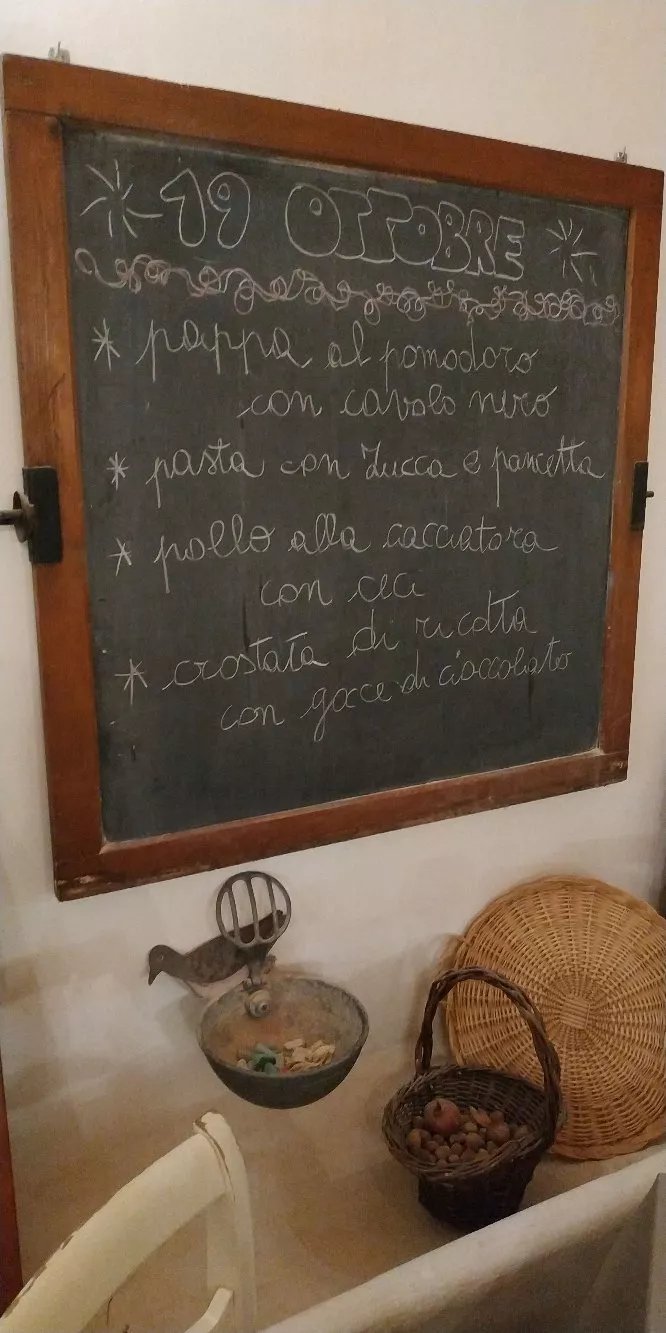 19 OTTOBRE
* pappa al pomodoro
con cavolo nero
* pasta con zucca e pancetta
* pollo alla cacciatora
con ceci
* crostata di ricotta
con gocce di cioccolato